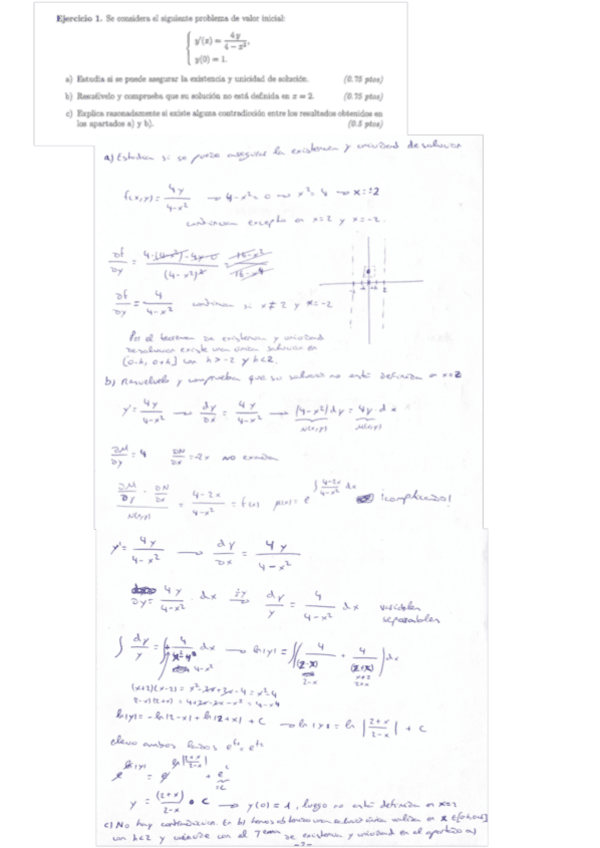 Ejercicio 1. Se considera el siguiente problema de valor inicial:
y'(x) = 4y / (4 − x²),
y(0) = 1.
a) Estudia si se puede asegurar la existencia y unicidad de solución. (0.75 ptos)
b) Resuélvelo y comprueba que su solución no está definida en x = 2. (0.75 ptos)
c) Explica razonadamente si existe alguna contradicción entre los resultados obtenidos en
los apartados a) y b). (0.5 ptos)
a) Estudia si se puede asegurar la existencia y unicidad de solución
f(x,y) = 4y / (4-x²) → 4-x² = 0 → x² = 4 → x = ±2
continua excepto en x=2 y x=-2.
∂f/∂y = 4/(4-x²) continua si x≠2 y x≠-2
Por el teorema de existencia y unicidad
de solución existe una única solución en
[0-h, 0+h] con h>-2 y h<2.
b) Resuélvelo y comprueba que su solución no está definida en x=2
y' = 4y/(4-x²) → dy/dx = 4y/(4-x²) → (4-x²) dy = 4y dx
N(x,y) M(x,y)
∂M/∂y = 4 ∂N/∂x = -2x no exacta
= (4-2x)/(4-x²) = f(x) μ(x) = e^∫(4-2x)/(4-x²) dx ¡complicado!
y' = 4y/(4-x²) → dy/dx = 4y/(4-x²)
dy = 4y/(4-x²) · dx → dy/y = 4/(4-x²) dx variables
separables
ln|y| = -ln|2-x| + ln|2+x| + C → ln|y| = ln|(2+x)/(2-x)| + C
elevo ambos lados
y = (2+x)/(2-x) · C → y(0) = 1, luego no está definida en x=2
c) No hay contradicción. En b) hemos obtenido una solución única
con h<2 y coincide con el Tema de existencia y unicidad en el apartado a)
-2-